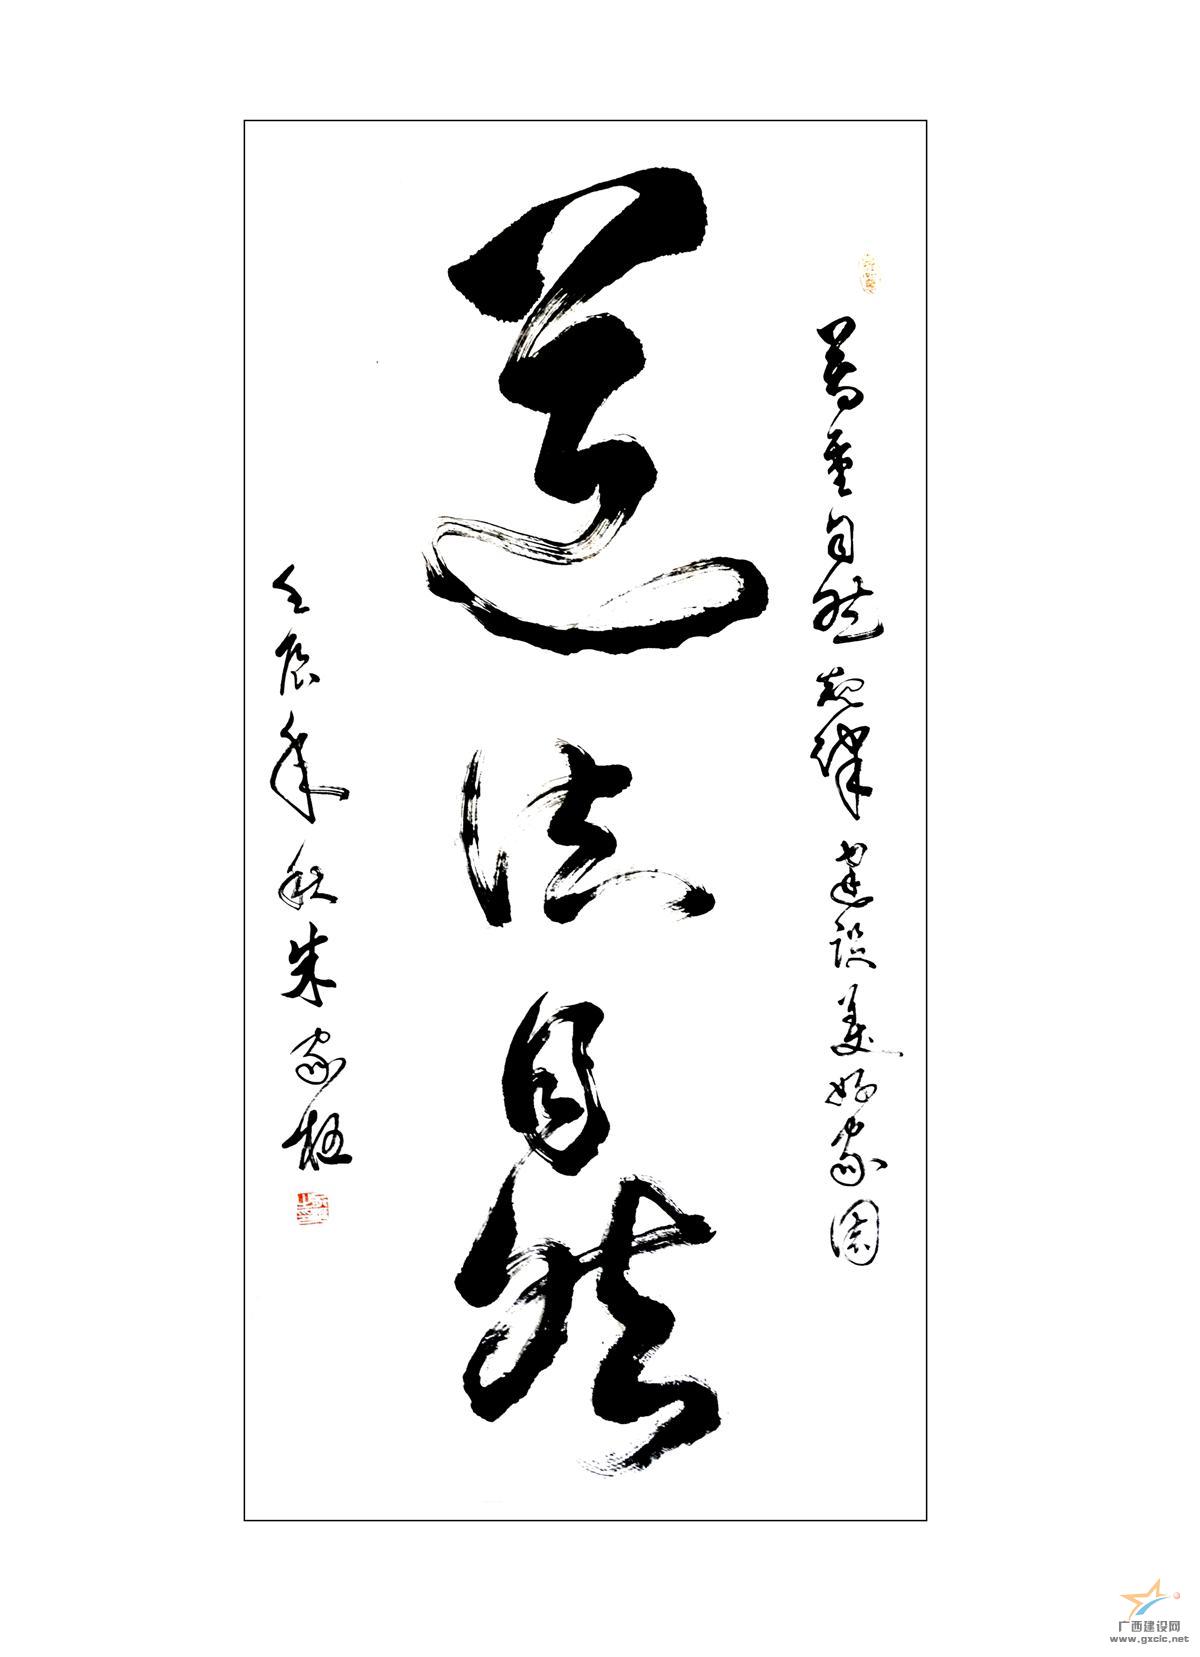 尊重自然規律建設美好家園
道法自然
壬辰年秋朱家
广西建设网
www.gxcic.net